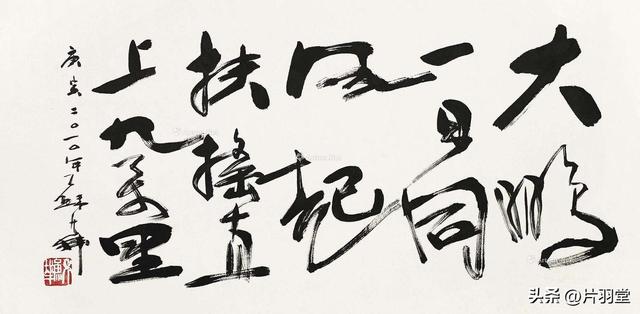 大鹏
一日同
风起
扶摇直
上九萬里
庚寅二〇一〇年
头条 @片羽堂